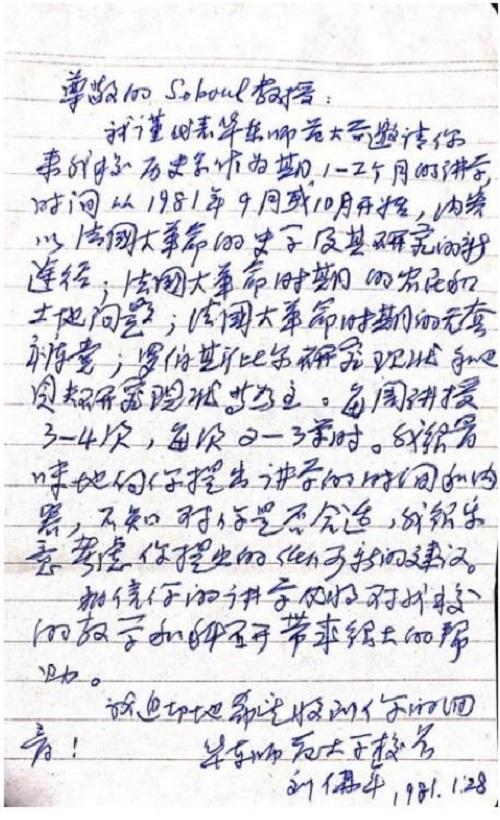 尊敬的 Soboul 教授:
我谨代表华东师范大学邀请你
来我校历史系作为期 1-2个月的讲学,
时间从 1981年 9月或10月开始, 内容
以法国大革命的史学及其研究的新
途径; 法国大革命时期的农民和
土地问题; 法国大革命时期的无套
裤汉; 罗伯斯比尔研究现状和
研究现状等为主。每周讲授
3-4次, 每次 2-3课时。我很冒
昧地向你提出讲学的时间和内
容, 不知对你是否合适, 我很乐
意考虑你提出的任何新的建议。
相信你的讲学必将对我校
的教学和科研带来很大的帮
助。
我迫切地希望收到你的回
音!
华东师范大学校长
刘佛年, 1981.1.28